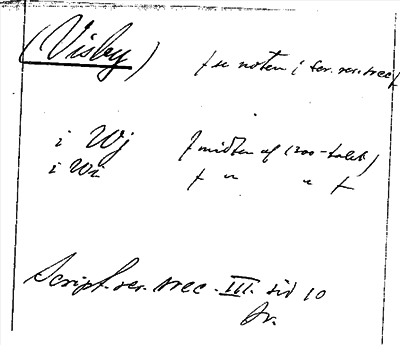 (Visby) (se noten i Scr. rer. svec)
i Wj (midten af 1300-talet)
i Wi ( " " )
Script. rer. svec. III. sid 10